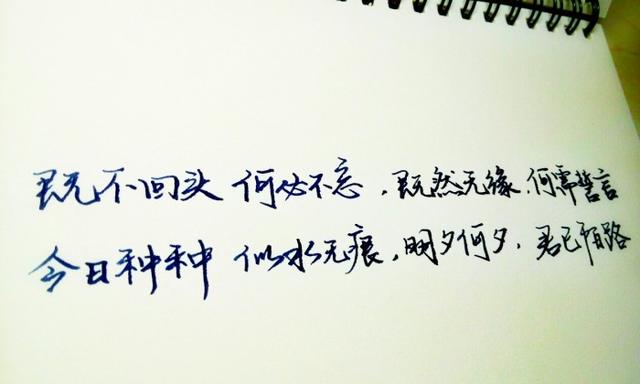 既不回头 何必不忘，既然无缘，何需誓言
今日种种 似水无痕，明夕何夕，君已陌路